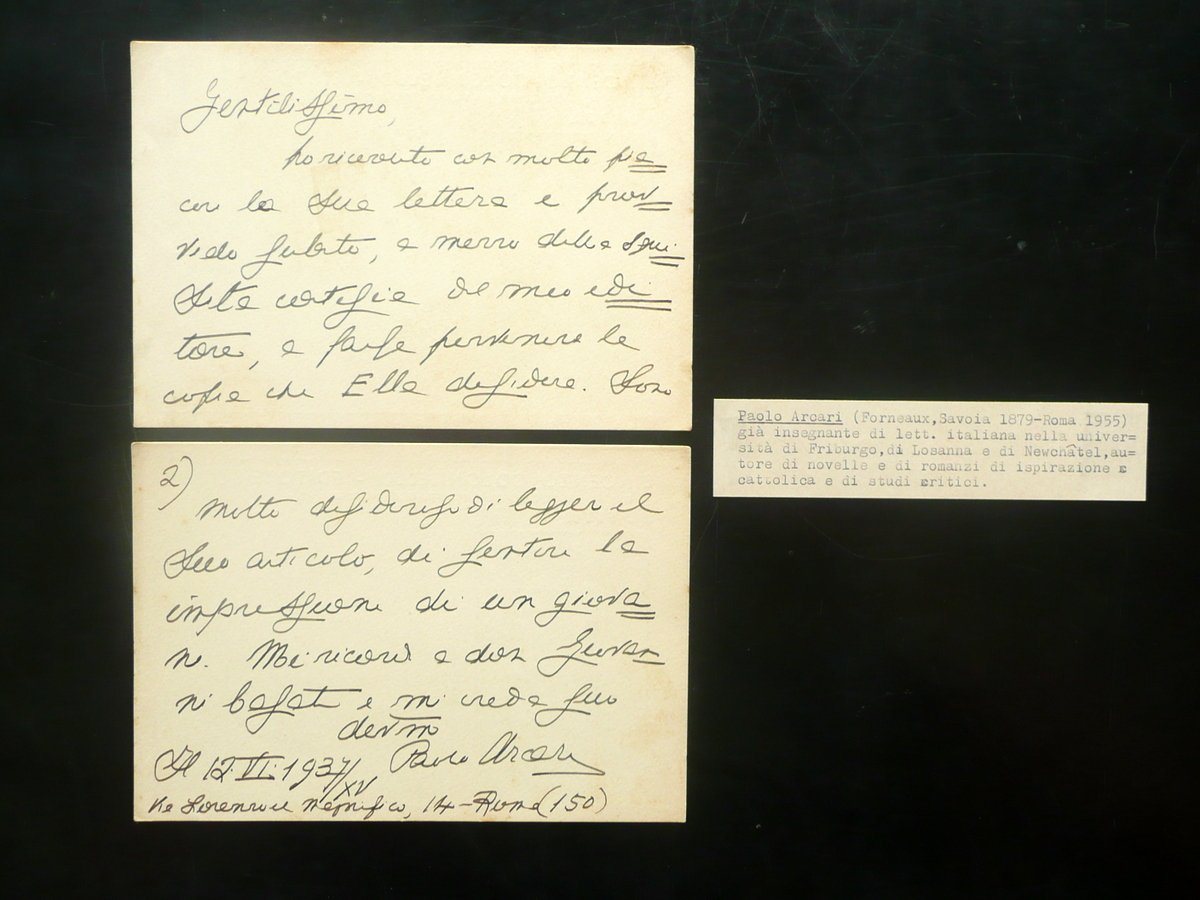 Gentilissimo,
ho ricevuto con molto pia=
cere la Sua lettera e prov=
vedo subito, a mezzo della squi=
sita cortesia del mio edi=
tore, a farLe pervenire le
copie che Ella desidera. Sono
2)
molto desideroso di legger il
Suo articolo, di sentire le
impressioni di un giova=
ne. Mi ricordi a don Giovan=
ni e mi creda suo
dev.mo
Paolo Arcari
Il 12.VI.1937/XV
Via Lorenzo il Magnifico, 14 - Roma (150)
Paolo Arcari (Forneaux,Savoia 1879-Roma 1955)
già insegnante di lett. italiana nella univer=
sità di Friburgo,di Losanna e di Newchâtel,au=
tore di novelle e di romanzi di ispirazione e
cattolica e di studi critici.